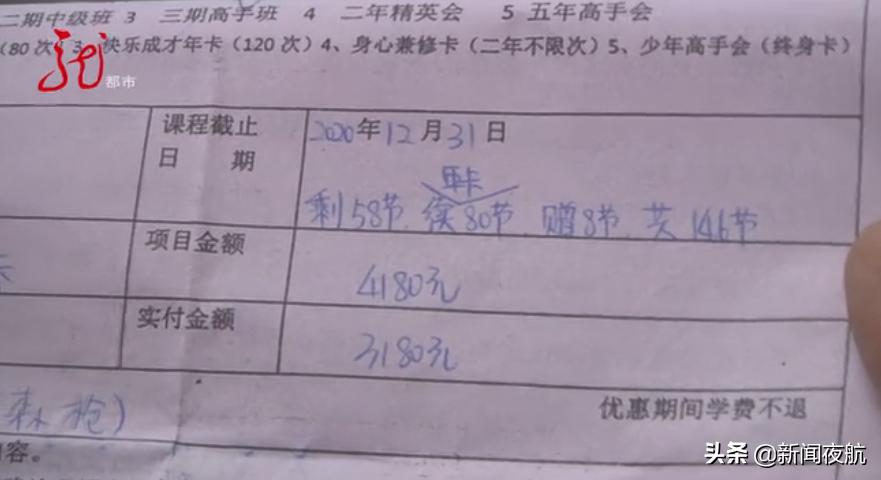 二期中级班 3 三期高手班 4 二年精英会 5 五年高手会
(80次) 3、快乐成才年卡（120 次）4、身心兼修卡（二年不限次）5、少年高手会（终身卡）
龙
都市
课程截止
日 期
2020年12月31日
年卡
剩58节、续80节、赠8节、共146节
项目金额
4180元
实付金额
3180元
枪）
优惠期间学费不退
容。
头条 @新闻夜航